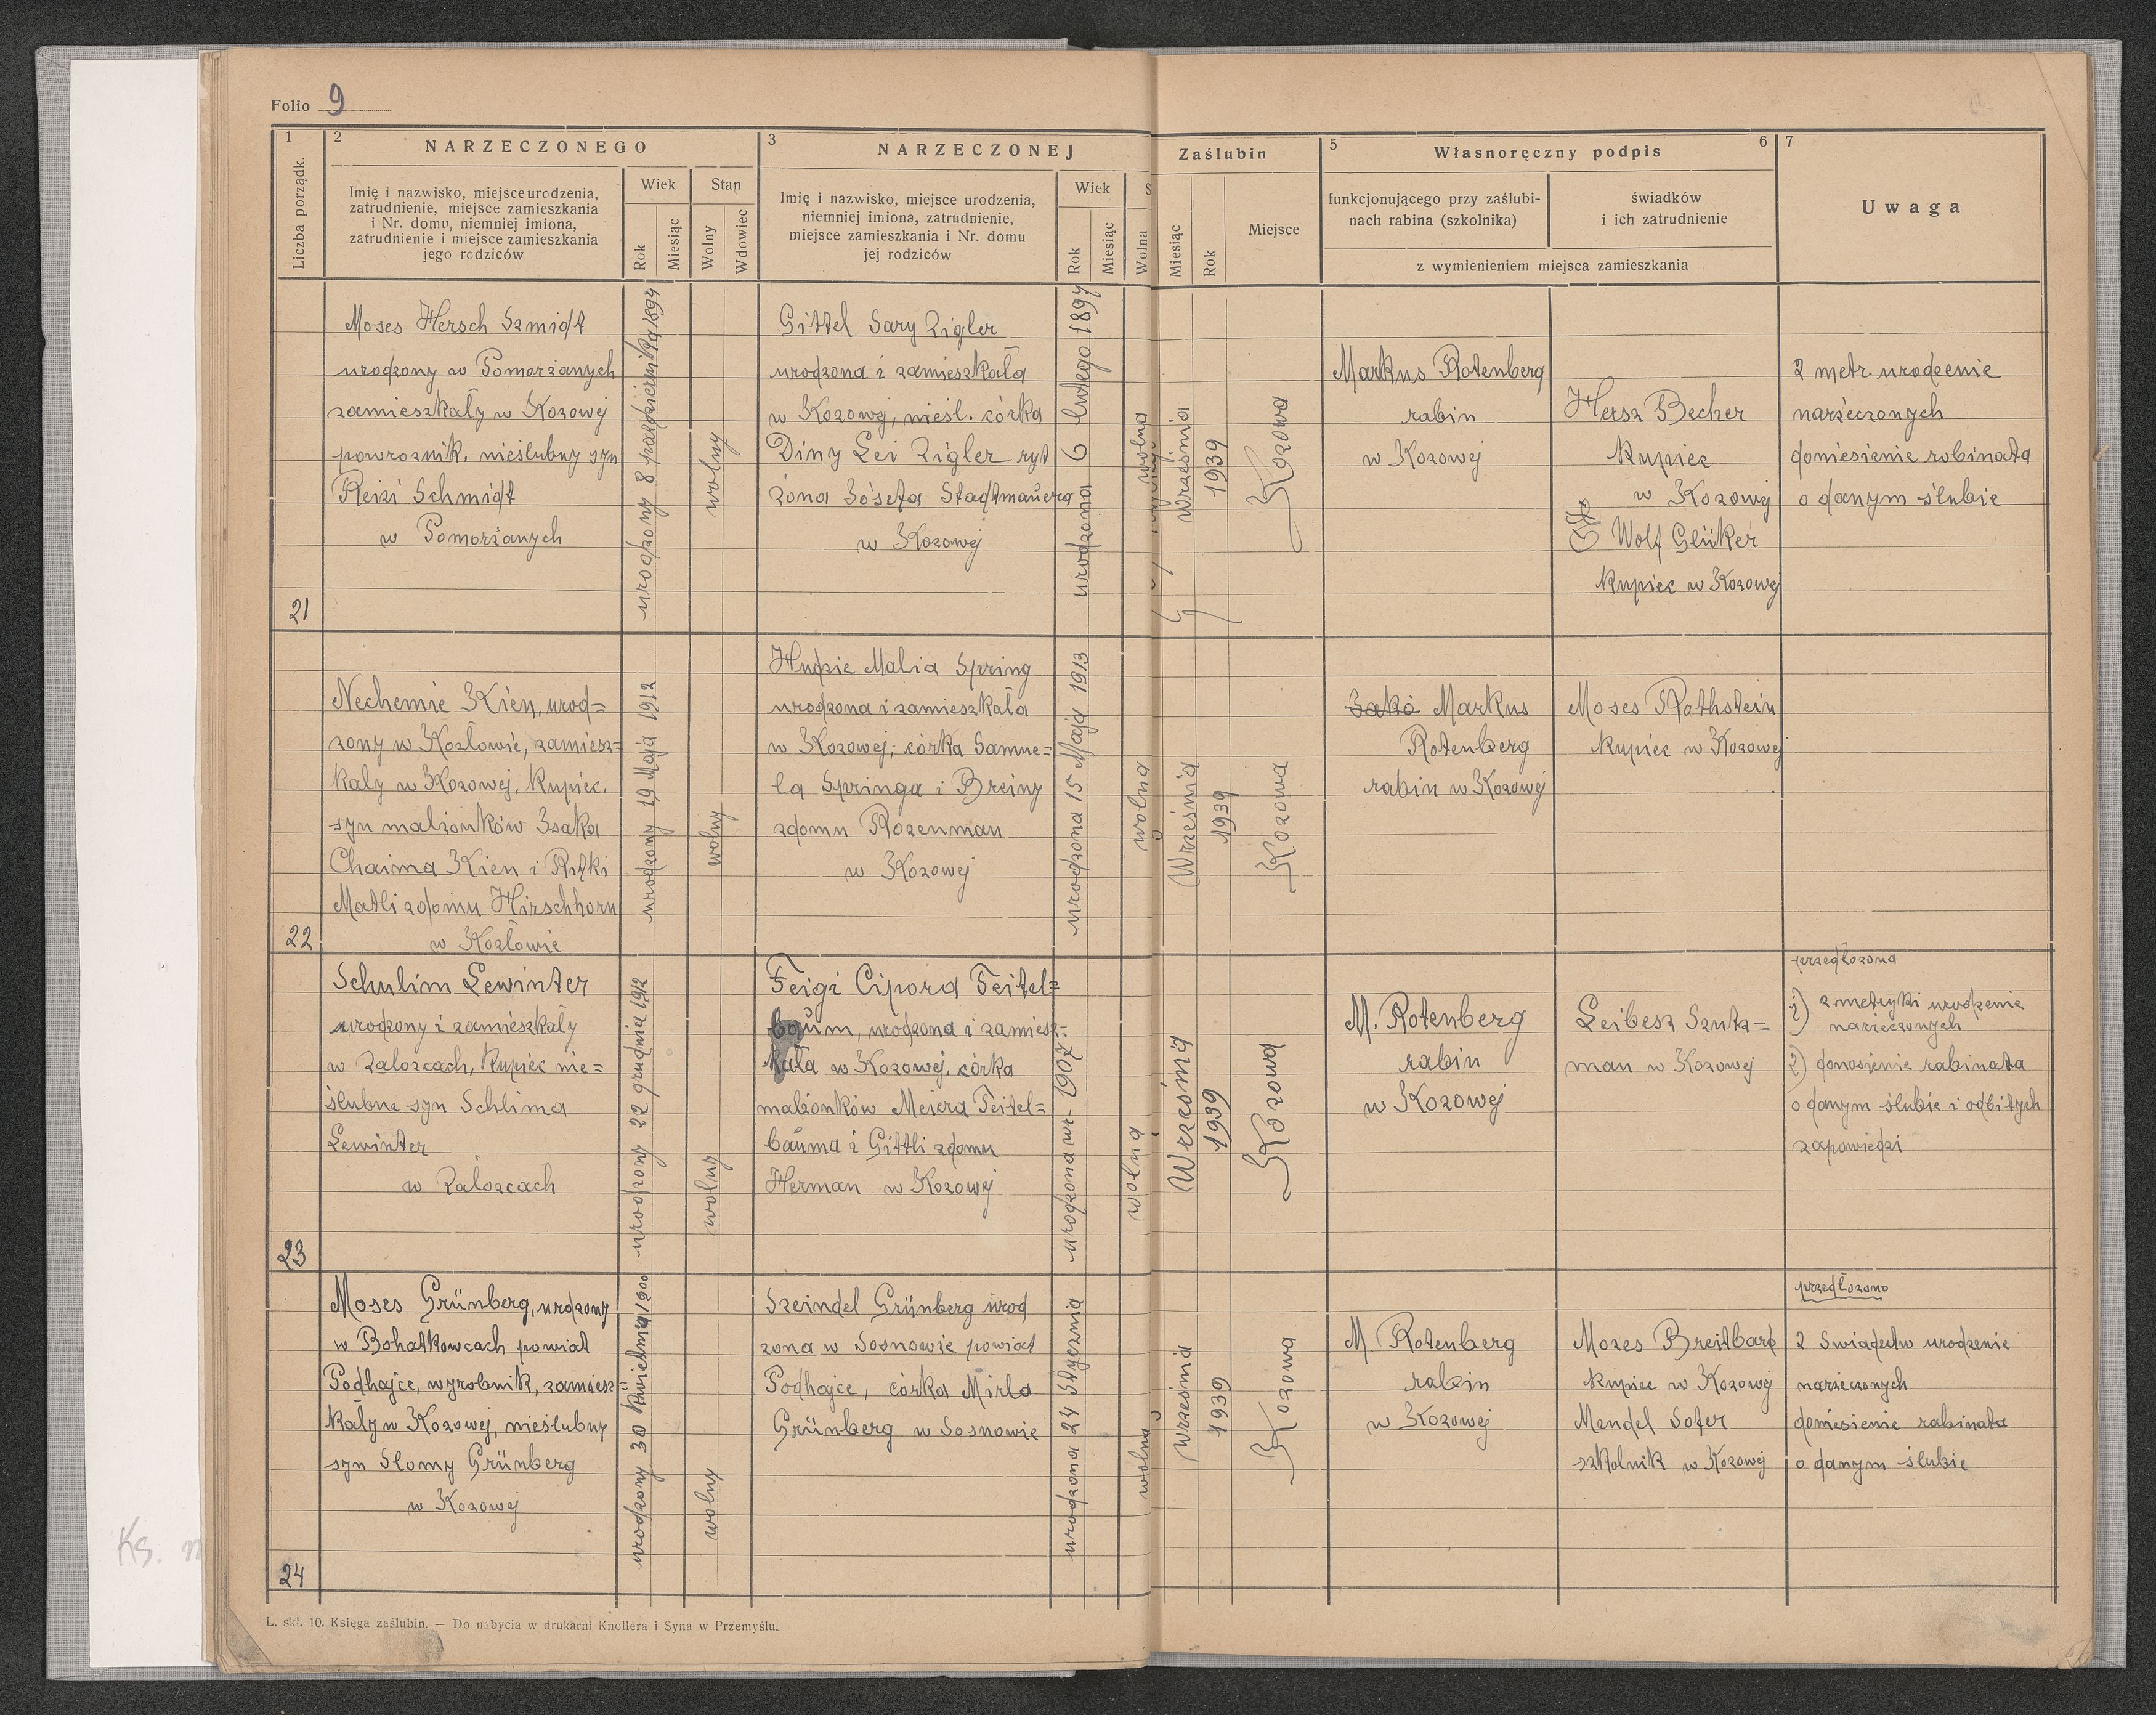 Folio 9
1
Liczba porządk.
2
NARZECZONEGO
Imię i nazwisko, miejsce urodzenia,
zatrudnienie, miejsce zamieszkania
i Nr. domu, niemniej imiona,
zatrudnienie i miejsce zamieszkania
jego rodziców
Wiek
Rok
Miesiąc
Stan
Wolny
Wdowiec
3
NARZECZONEJ
Imię i nazwisko, miejsce urodzenia,
niemniej imiona, zatrudnienie,
miejsce zamieszkania i Nr. domu
jej rodziców
Wiek
Rok
Miesiąc
S
Wolna
Zaślubin
Miesiąc
Rok
Miejsce
5
Własnoręczny podpis
6
funkcjonującego przy zaślubi-
nach rabina (szkolnika)
świadków
i ich zatrudnienie
z wymienieniem miejsca zamieszkania
7
Uwaga
21
Moses Hersch Szmidt
urodzony w Pomorzanych
zamieszkały w Kozowej
powroznik, nieślubny syn
Reizi Schmidt
w Pomorzanych
urodzony 8 października 1894
wolny
Gittel Sary Zigler
urodzona i zamieszkała
w Kozowej, nieśl. córka
Diny Lei Zigler ryt
żona Józefa Stadtmauera
w Kozowej
urodzona 6 lutego 1897
wolna
Wrześnią
1939
Kozowa
Markus Rotenberg
rabin
w Kozowej
Hersz Becher
Kupiec
w Kozowej
Wolf Glüker
Kupiec w Kozowej
2 metr. urodzenie
narzeczonych
doniesienie rabinata
o danym ślubie
22
Nechemie Kien, urod=
zony w Kozłowie, zamiesz=
kały w Kozowej, Kupiec,
syn malżonków Isaka
Chaima Kien i Rifki
Matli zdomu Hirschhorn
w Kozłowie
urodzony 19 Maja 1912
wolny
Hudzie Malia Spring
urodzona i zamieszkała
w Kozowej, córka Samue=
la Springa i Breiny
zdomu Rozenman
w Kozowej
urodzona 15 Maja 1913
wolna
Wrześnią
1939
Kozowa
Markus
Rotenberg
rabin w Kozowej
Moses Rothstein
Kupiec w Kozowej
23
Schulim Lewinter
urodzony i zamieszkały
w Zalozcach, Kupiec nie=
ślubne syn Schlima
Lewinter
w Zalozcach
urodzony 22 grudnia 1912
wolny
Feigi Cipora Teitel=
baum, urodzona i zamiesz=
kała w Kozowej, córka
malżonków Meiera Teitel=
bauma i Gittli zdomu
Herman w Kozowej
urodzona wr. 1907
wolna
Wrześnią
1939
Kozowa
M. Rotenberg
rabin
w Kozowej
Leibesz Szuta=
man w Kozowej
przedłożona
1) 2 metryki urodzenie
narzeczonych
2) donosienie rabinata
o danym ślubie i odbitych
zapowiedzi
24
Moses Grünberg, urodzony
w Bohatkowcach powiat
Podhajce, wyrobnik, zamiesz=
kały w Kozowej, nieślubny
syn Slomy Grünberg
w Kozowej
urodzony 30 Kwietnia 1900
wolny
Szeindel Grünberg urod
zona w Sosnowie powiat
Podhajce, córka Mirla
Grünberg w Sosnowie
urodzona 24 Stycznia
wolna
Wrześnią
1939
Kozowa
M. Rotenberg
rabin
w Kozowej
Mozes Breitbard
Kupiec w Kozowej
Mendel Sofer
szkolnik w Kozowej
przedłozono
2 Świadectw urodzenie
narzeczonych
doniesienie rabinata
o danym ślubie
L. skł. 10. Księga zaślubin. — Do nabycia w drukarni Knollera i Syna w Przemyślu.
Ks.